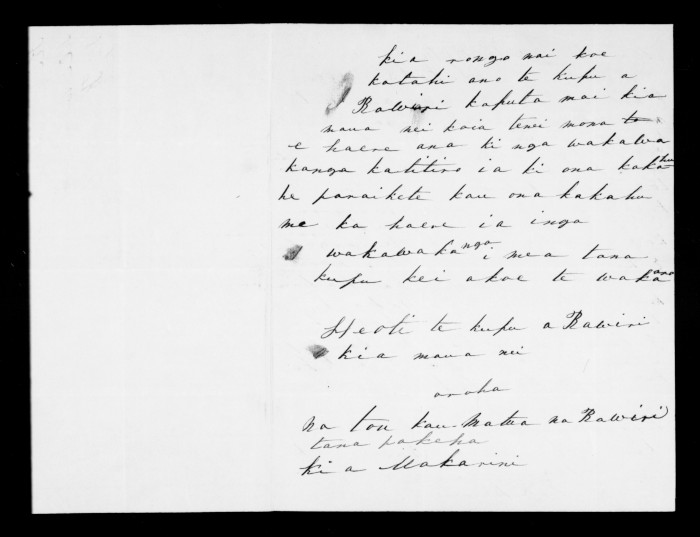 kia rongo mai koe
katahi ano te kupu a
Rawiri kaputa mai kia
maua nei koia tenei mona to
e haere ana ki nga wakawa
kanga katitiro ia ki ona kakahu
he paraikete kau ona kakahu
me ka haere ia inga
wakawakanga i mea tana
kupu kei akoe te wakaaro
Heoti te kupu a Rawiri
kia maua nei
aroha
na tou kau-matua na Rawiri
tana pakeha
ki a Makarini